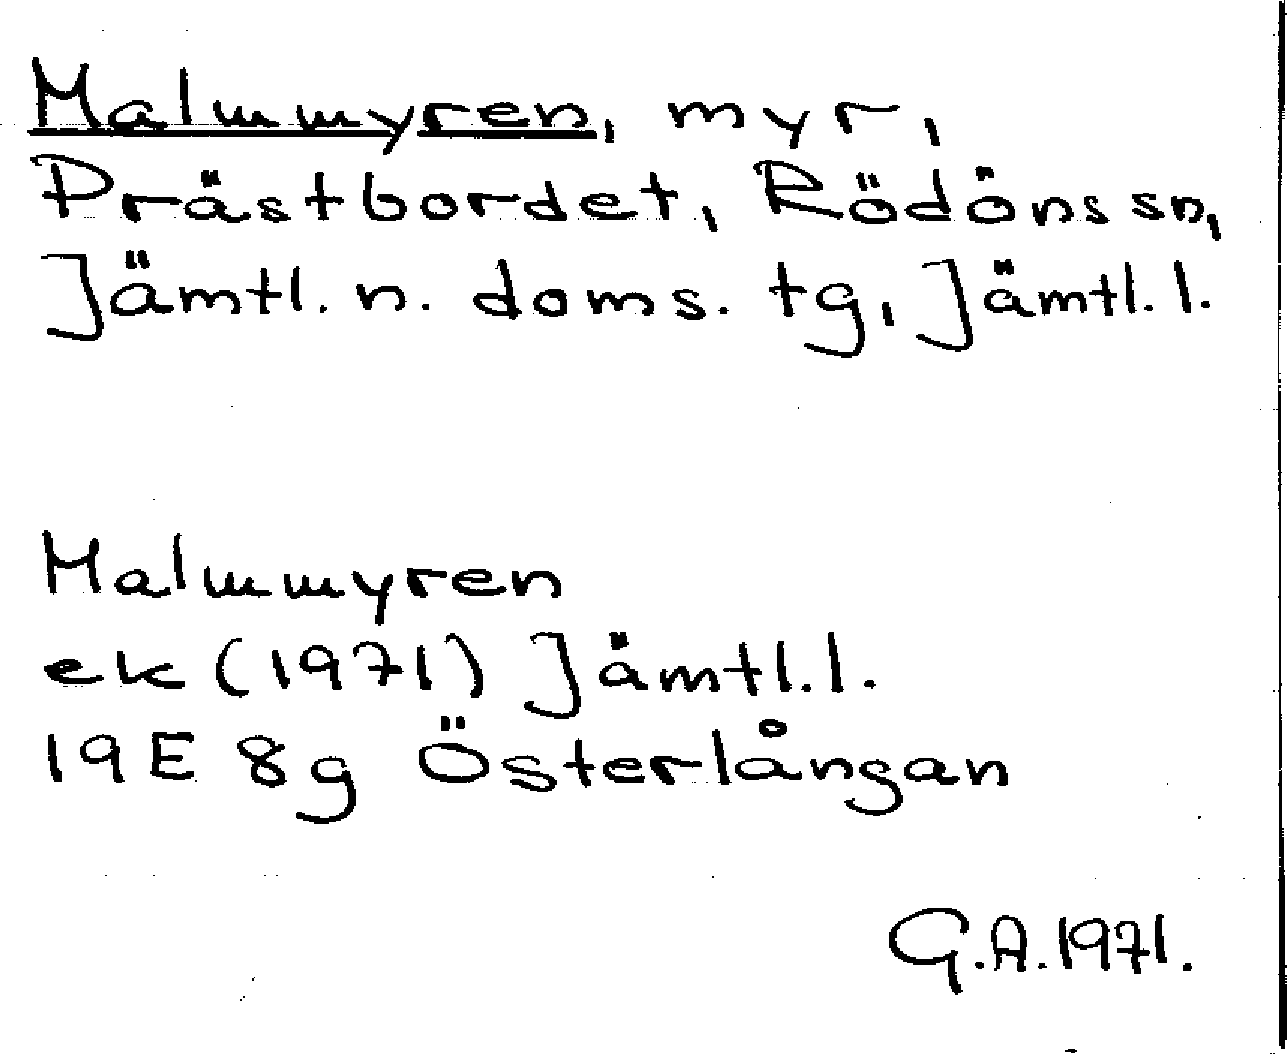 Malmmyren, myr,
Prästbordet, Rödöns sn,
Jämtl. n. doms. tg, Jämtl. l.
Malmmyren
ek (1971) Jämtl. l.
19E 8g Österlångan
G.A. 1971.